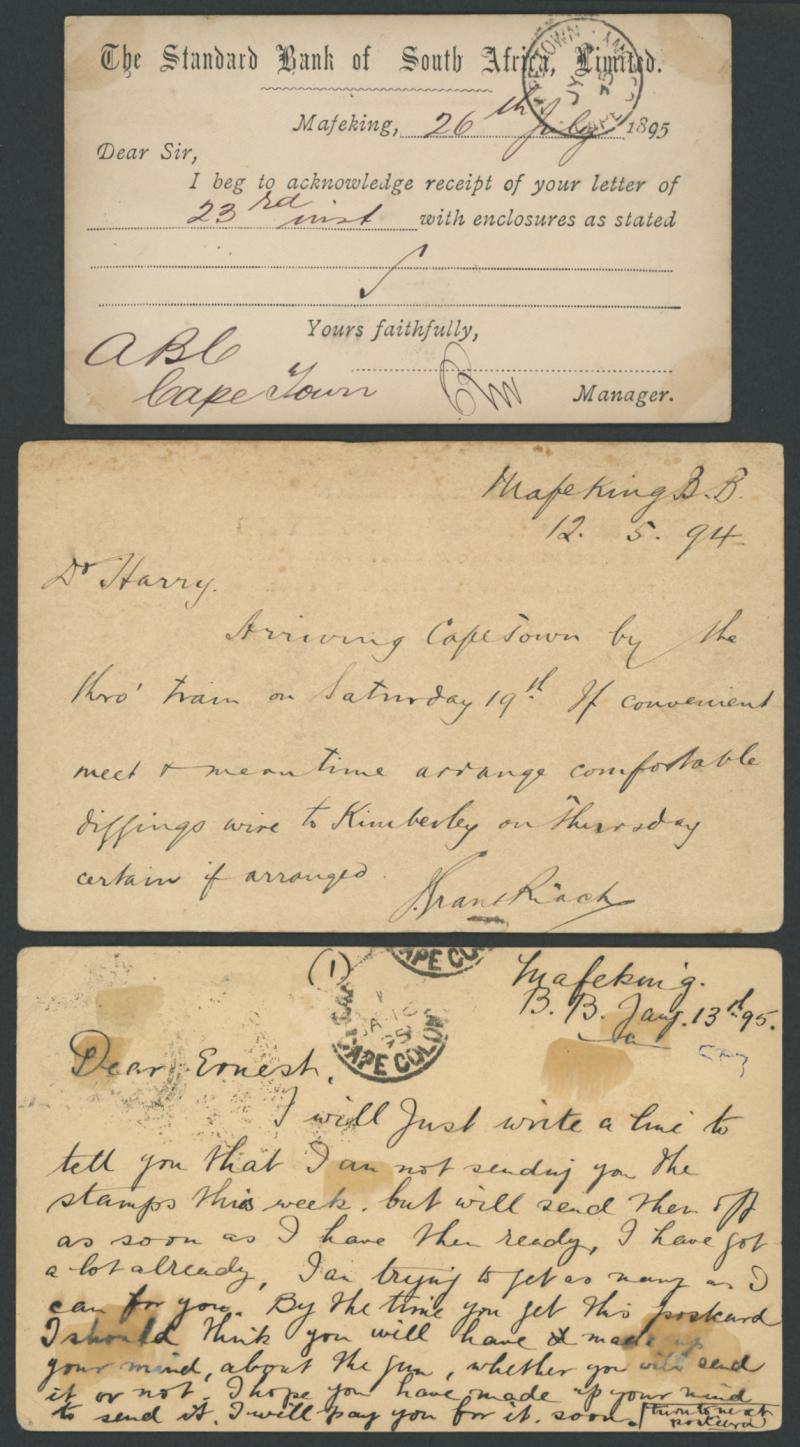 The Standard Bank of South Africa, Limited.
Mafeking, 26th July 1895
Dear Sir,
I beg to acknowledge receipt of your letter of
23rd inst with enclosures as stated
Yours faithfully,
ABC
Cape Town
Manager.
CAPE TOWN
JY
95
Mafeking B.B.
12. 5. 94
Dr Harry.
Arriving Cape Town by the
thro' train on Saturday 19th If convenient
meet & meantime arrange comfortable
diggings wire to Kimberley on Thursday
certain if arranged.
(1)
CAPE COLONY
JA 16
95
Mafeking.
B. B. Jany. 13th 95.
Dear Ernest,
I will Just write a line to
tell you that I am not sending you the
stamps this week. but will send them off
as soon as I have them ready, I have got
a lot already, I am trying to get as many as I
can for you. By the time you get this postcard
I should think you will have made up
your mind, about the gun, whether you will send
it or not. I hope you have made up your mind
to send it. I will pay you for it. soon. (turn to next
postcard